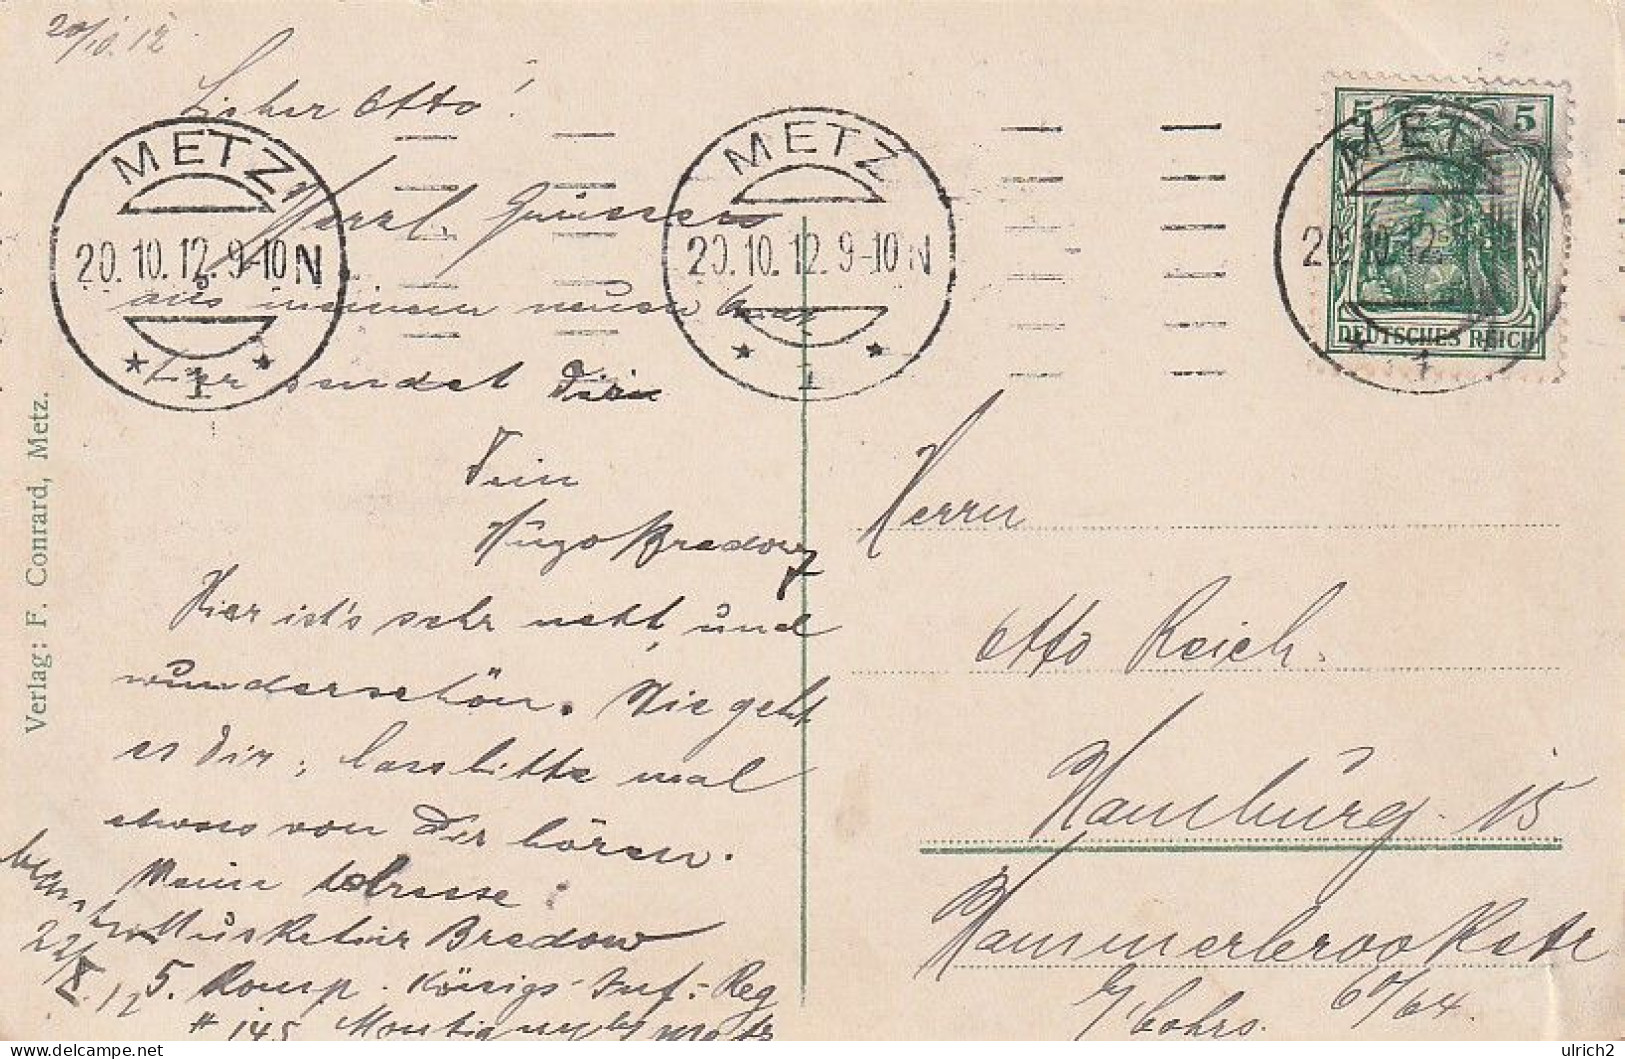 20/10.12
Lieber Otto!
METZ
20.10.12.9-10N
1
METZ
20.10.12.9-10N
1
METZ
20.10.12
1
5
5
DEUTSCHES REICH
Herzl. Grüsse
aus meinem neuen
sendet Dir
Dein
Hugo Bredow
Hier ist's sehr nett, und
wunderschön. Wie geht
es Dir, lass bitte mal
etwas von Dir hören.
Meine Adresse:
Musketier Bredow
5. Komp. Königs-Inf.-Reg
# 145 Montigny b/
22/X.12
Herrn
Otto Reich.
Hamburg. 15
Hammerbrookstr
60/64.
b/ Cohrs.
Verlag: F. Conrard, Metz.
ulrich2